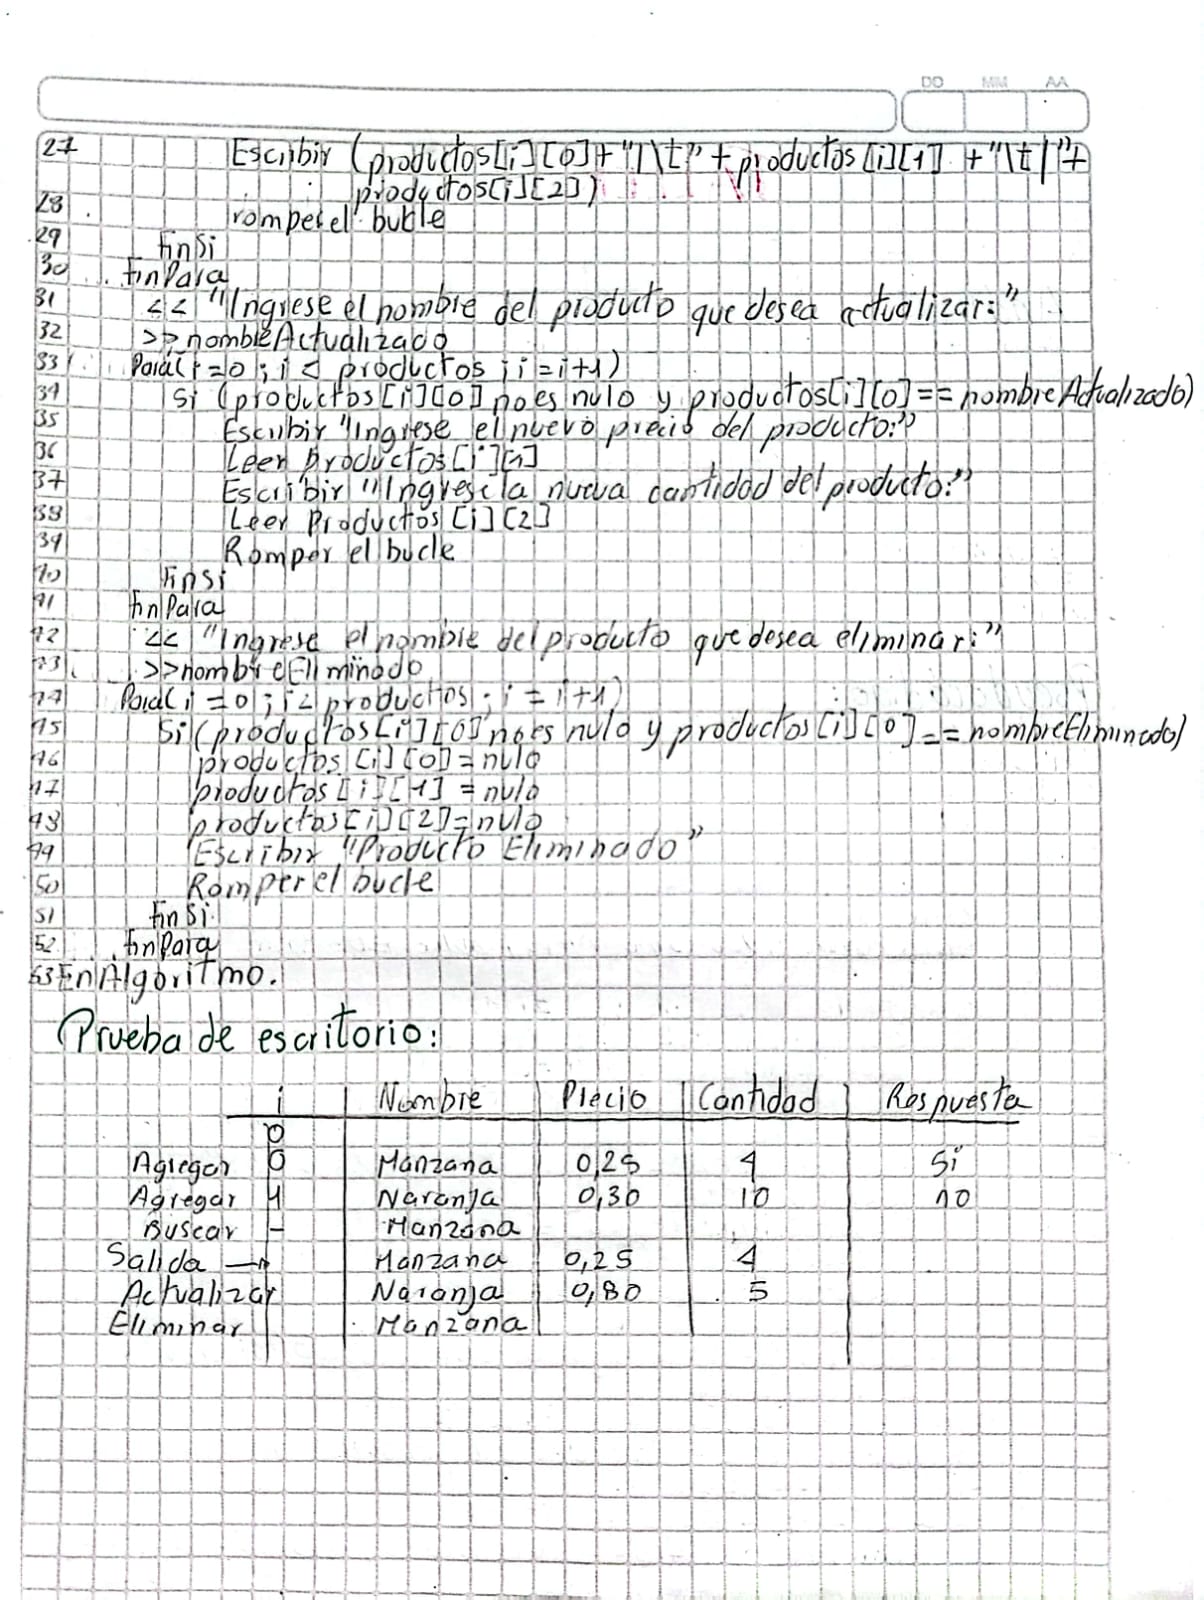 DD MM AA
27 Escribir (productos[i][0]+"|\t"+productos[i][1] +"\t|"+
productos[i][2])
28 romper el bucle
29 FinSi
30 FinPara
31 << "Ingrese el nombre del producto que desea actualizar:"
32 >>nombreActualizado
33 Para(i=0; i< productos; i=i+1)
34 Si (productos[i][0] no es nulo y productos[i][0]==nombreActualizado)
35 Escribir "Ingrese el nuevo precio del producto:"
36 Leer Productos[i][1]
37 Escribir "Ingrese la nueva cantidad del producto:"
38 Leer Productos[i][2]
39 Romper el bucle
40 FinSi
41 FinPara
42 << "Ingrese el nombre del producto que desea eliminar:"
43 >>nombreEliminado
44 Para(i=0; i< productos; i=i+1)
45 Si (productos[i][0] no es nulo y productos[i][0]==nombreEliminado)
46 productos[i][0]=nulo
47 productos[i][1]=nulo
48 productos[i][2]=nulo
49 Escribir "Producto Eliminado"
50 Romper el bucle
51 FinSi
52 FinPara
53 FinAlgoritmo.
Prueba de escritorio:
i Nombre Precio Cantidad Respuesta
0
Agregar 0 Manzana 0,25 4 Si
Agregar 1 Naranja 0,30 10 no
Buscar - Manzana
Salida → Manzana 0,25 4
Actualizar Naranja 0,80 5
Eliminar Manzana